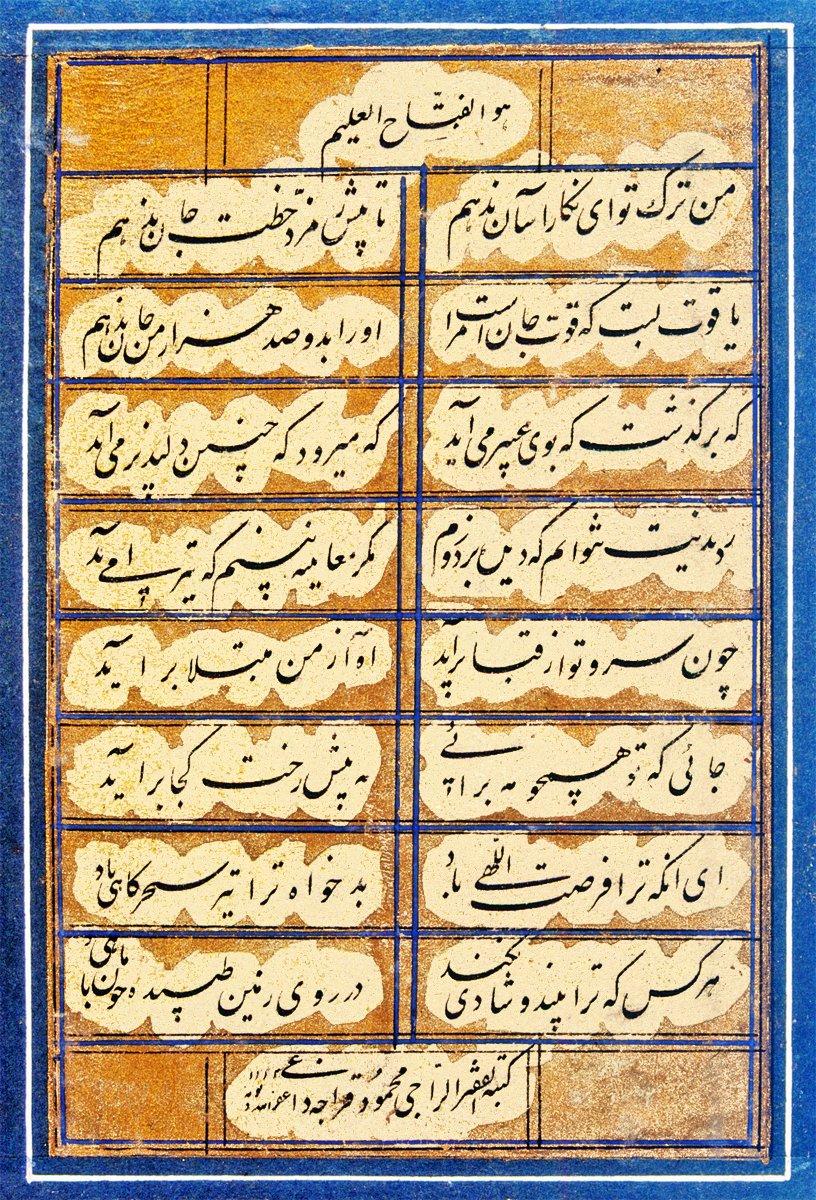 هو الفتاح العلیم
من ترک تو ای نکارا آسان ندهم
تا پیش ز مزد خطت جان بندهم
یاقوت لبت که قوت جان است مرا
اورا بدو صد هزار من جان ندهم
که برکذشت که بوی عبیر می آید
که میرود که چنین دلپذیر می آید
ردیدنیت نتوانم که دیده بردوزم
مکر معاینه بینم که تیر می آید
چون سرو تو از قبا برآید
اه آز من مبتلا برآید
جائی که تو همچو مه برائے
مه پیش رخت کجا برآید
ای انکه ترا فرصت اللهے باد
بد خواه ترا تیر سحرکاهی باد
هر کس که ترا بیند و شادی نکند
در روی زمین طپیده چون ماهی باد
کتبه الفقیر الراجی محمود